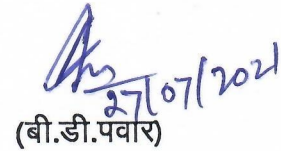 27/07/2021
(बी.डी.पवार)